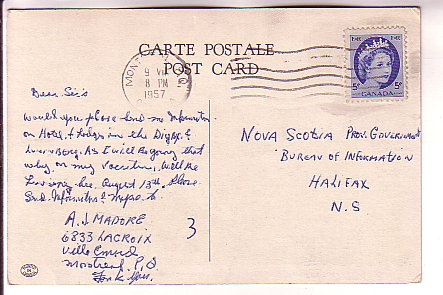 CARTE POSTALE
POST CARD
MONTREAL P.Q.
9 VII
8 PM
1957
5¢ 5¢
CANADA
Dear Sirs
Would you please send me Information
on Hotel & Lodges in the Digby &
Lunenberg. As I will be going that
way on my Vacation, will be
leaving here August 13th. Please
Send Information & Maps to
A. J. MADORE
6833 LACROIX
Ville Emard
Montreal P.Q.
Thank You.
3
NOVA SCOTIA PROV. GOVERNMENT
BUREAU OF INFORMATION
HALIFAX
N.S